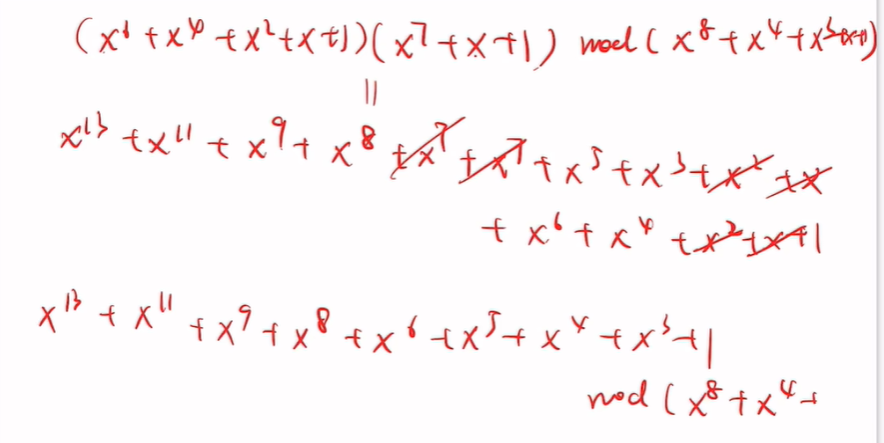 (x⁶ + x⁴ + x² + x + 1)(x⁷ + x + 1) mod (x⁸ + x⁴ + x³ + x + 1)
=
x¹³ + x¹¹ + x⁹ + x⁸ + x⁷ + x⁷ + x⁵ + x³ + x² + x
+ x⁶ + x⁴ + x² + x + 1
x¹³ + x¹¹ + x⁹ + x⁸ + x⁶ + x⁵ + x⁴ + x³ + 1
mod (x⁸ + x⁴ +